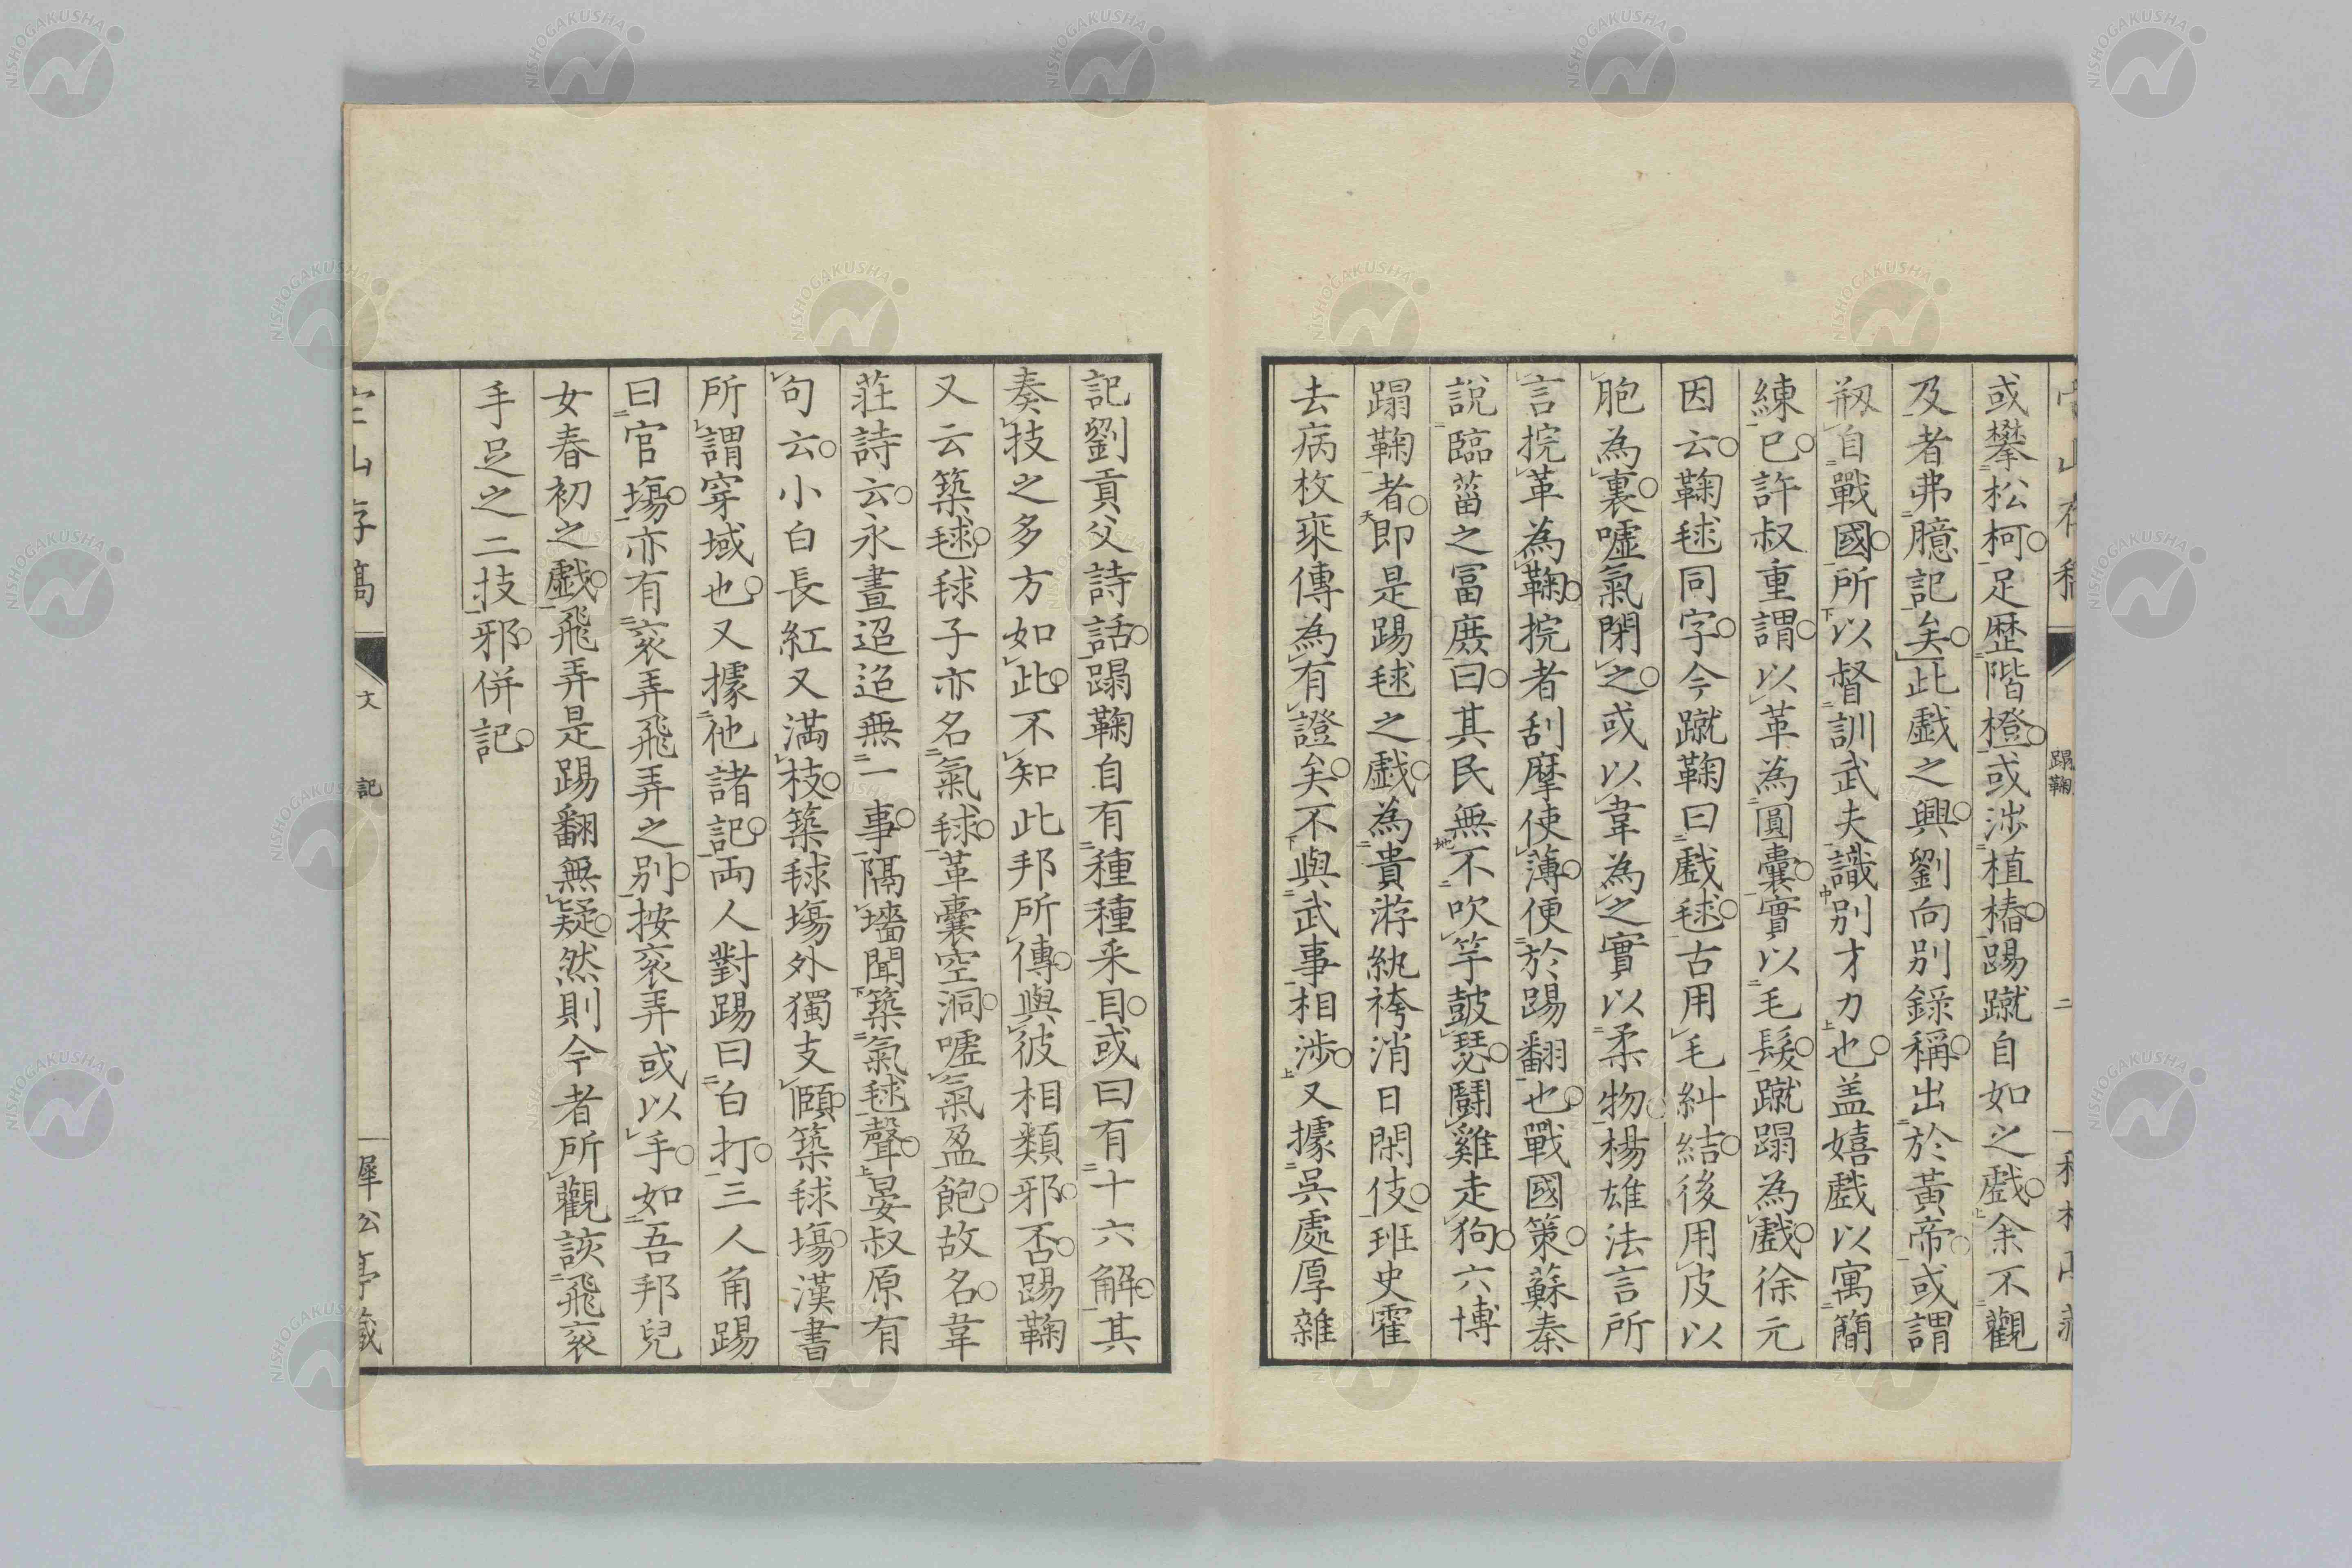 或攀松柯足歴階橙或渉植樁踢蹴自如之戯余不觀
及者弗臆記矣此戯之興劉向別錄稱出於黃帝或謂
剏自戰國所以督訓武夫識別才力也盖嬉戲以寓簡
練已許叔重謂以革為圓囊實以毛髮蹴蹋為戲徐元
因云鞠毬同字今蹴鞠曰戲毬古用毛糾結後用皮以
胞為裏嘘氣閉之或以韋為之實以柔物楊雄法言所
言捖革為鞠捖者刮摩使薄便於踢翻也戰國策蘇秦
說臨菑之富庶曰其民無不吹竽鼓瑟鬭雞走狗六博
蹋鞠者即是踢毬之戲為貴游紈袴消日閑伎班史霍
去病枚乘傳為有證矣不與武事相渉又據吳處厚雜
蹋鞠
二
記劉貢父詩話蹋鞠自有種種釆目或曰有十六解其
奏技之多方如此不知此邦所傳與彼相類邪否踢鞠
又云築毬毬子亦名氣毬革囊空洞嘘氣盈飽故名韋
莊詩云永晝迢迢無一事隔墻聞築氣毬聲晏叔原有
句云小白長紅又滿枝築毬塲外獨支頤築毬塲漢書
所謂穿域也又據他諸記両人對踢曰白打三人角踢
曰官塲亦有衮弄飛弄之別按衮弄或以手如吾邦兒
女春初之戯飛弄是踢翻無疑然則今者所觀該飛衮
手足之二技邪併記
宕山存稿
文
記
犀公亭藏